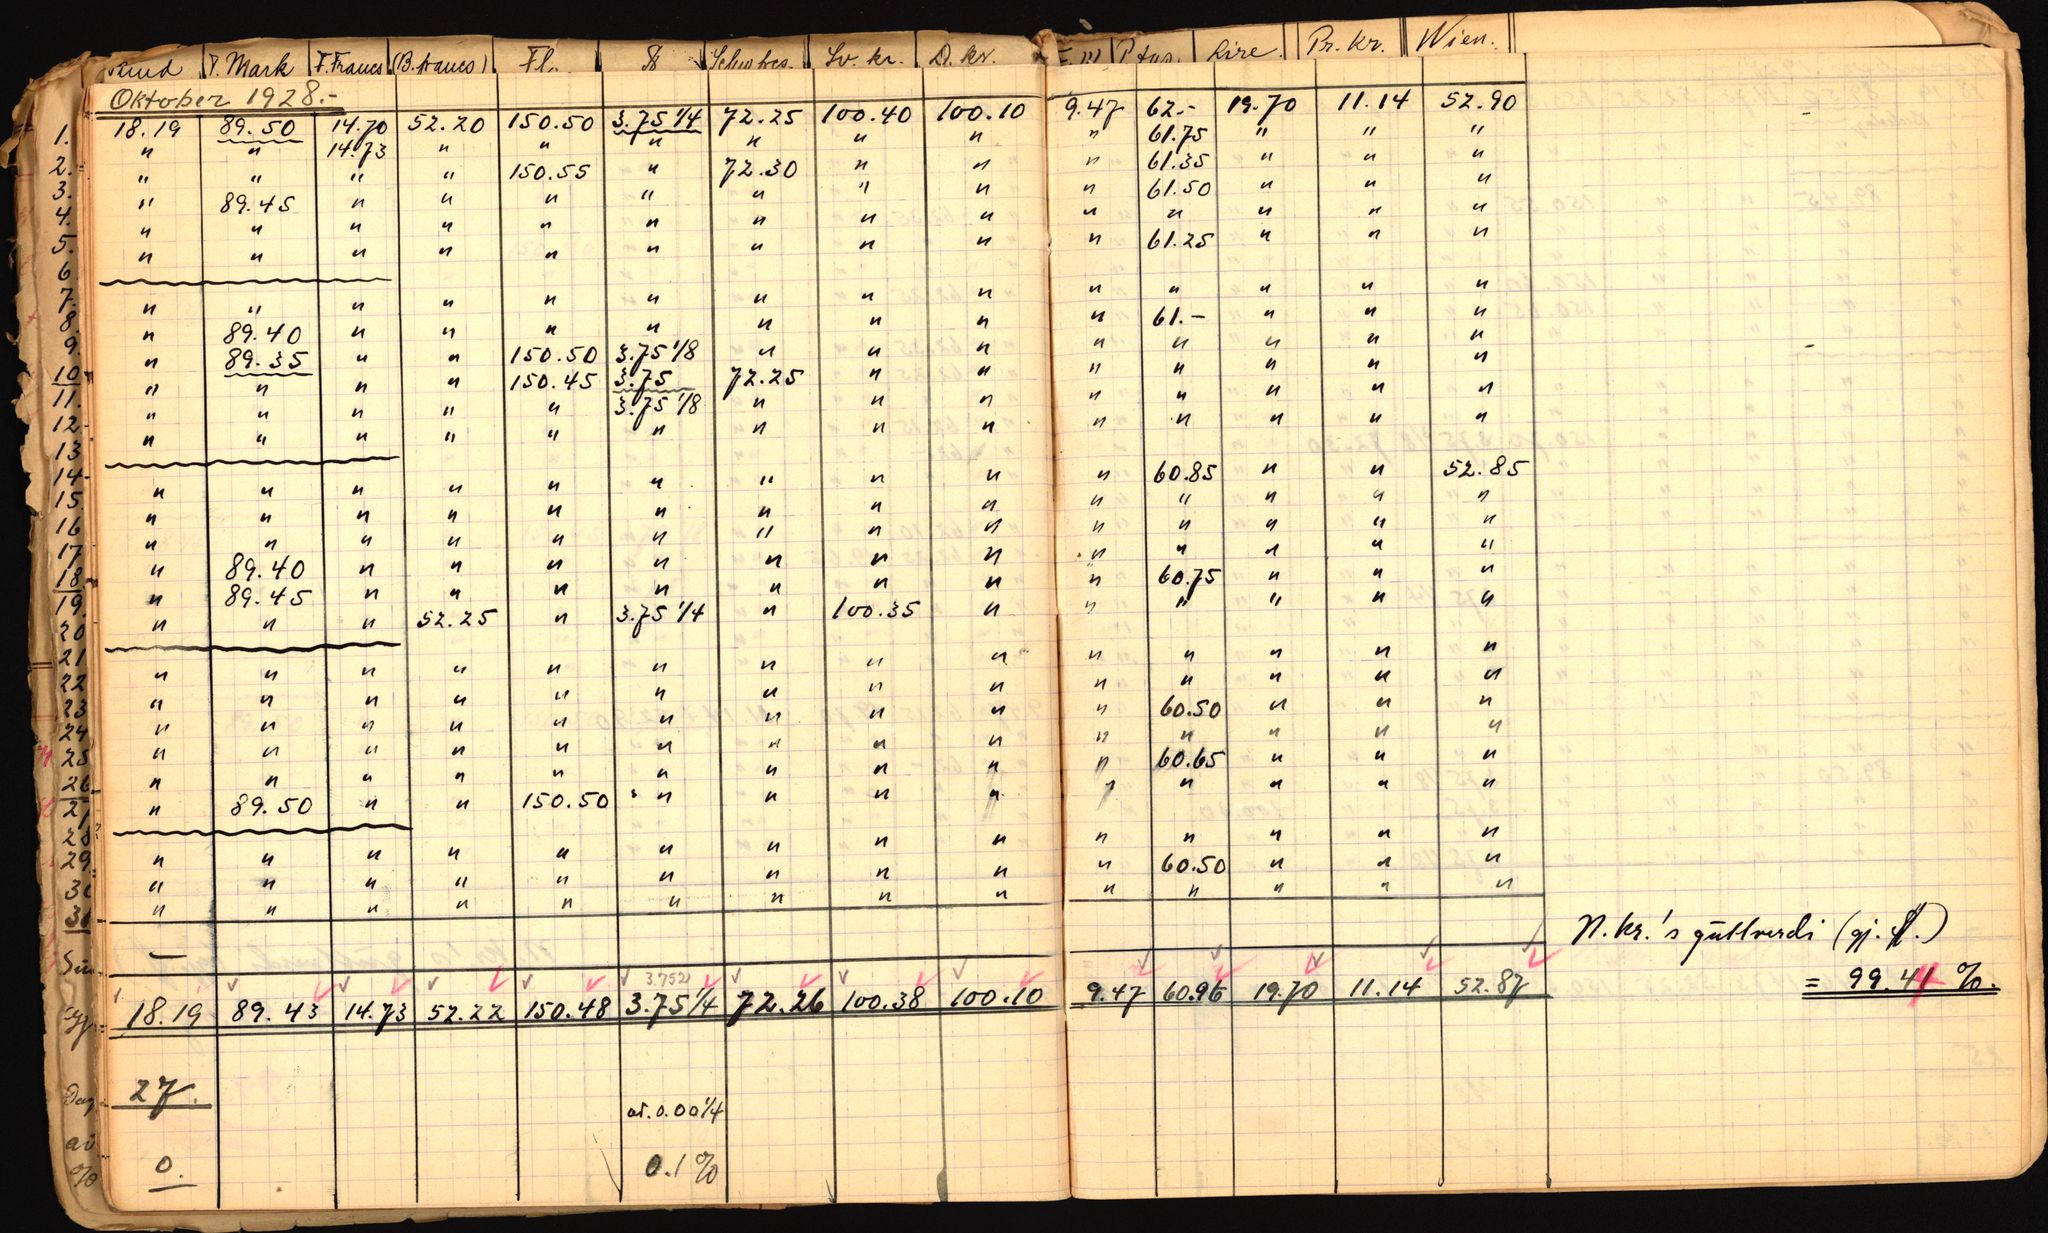 Pund T. Mark F. Francs (B. francs) Fl. $ Schw. frcs. Sv. kr. D. kr. F. M Ptas. Lire. Pr. Kr. Wien.
Oktober 1928.-
1. 18.19 89.50 14.70 52.20 150.50 3.75 1/4 72.25 100.40 100.10 9.47 62.- 19.70 11.14 52.90
2. " " 14.73 " " " " " " " 61.75 " " "
3. " " " " 150.55 " 72.30 " " " 61.35 " " "
4. " 89.45 " " " " " " " " 61.50 " " "
5. " " " " " " " " " " " " " "
6. " " " " " " " " " " 61.25 " " "
7.
8. " " " " " " " " " " " " " "
9. " 89.40 " " " " " " " " 61.- " " "
10. " 89.35 " " 150.50 3.75 1/8 " " " " " " " "
11. " " " " 150.45 3.75 72.25 " " " " " " "
12. " " " " " 3.75 1/8 " " " " " " " "
13 " " " " " " " " " " " " " "
14
15. " " " " " " " " " " 60.85 " " 52.85
16 " " " " " " " " " " " " " "
17 " " " " " " " " " " " " " "
18. " 89.40 " " " " " " " " " " " "
19. " 89.45 " " " " " " " " 60.75 " " "
20 " " " 52.25 " 3.75 1/4 " 100.35 " " " " " "
21
22 " " " " " " " " " " " " " "
23 " " " " " " " " " " " " " "
24 " " " " " " " " " " 60.50 " " "
25 " " " " " " " " " " " " " "
26 " " " " " " " " " " 60.65 " " "
27 " 89.50 " " 150.50 " " " " " " " " "
28
29 " " " " " " " " " " " " " "
30 " " " " " " " " " " 60.50 " " "
31 " " " " " " " " " " " " " "
N. kr.'s gullverdi (gj. $.)
= 99.41 %.
3752
18.19 89.43 14.73 52.22 150.48 3.75 1/4 72.26 100.38 100.10 9.47 60.96 19.70 11.14 52.87
Dag 27.
av. 0.00 1/4
% 0. 0.1 %